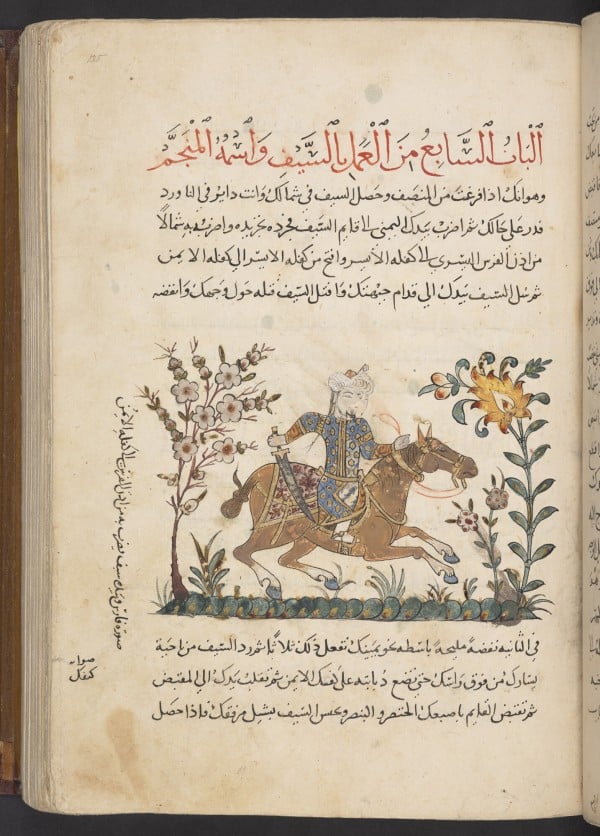 الباب السابع من العمل بالسيف واسمه المنجم
وهو انك اذا فرغت من المنصف وحصل السيف في شمالك وانت داير في الناورد
قدر على حالك ثم اضرب بيدك اليمنى الى قايم السيف فجرده بحريده واضرب به شمالا
من اذن الفرس اليسرى الى كفله الايسر وافتح من كفله الايسر الى كفله الايمن
ثم شل السيف بيدك الى قدام جبهتك وافتل السيف فتله حول وجهك وانفضه
صورة فارس وبيده سيف يضرب به من اذن الفرس الى كفله الايمن
في الثانيه نفضة مليحة باسطه نحو يمينك تفعل ذلك ثلاثا ثم رد السيف من ناحية
يسارك من فوق راسك حتى تضع ذبابته على كفك الايمن ثم تقلب يدك الى المقبض
ثم تقبض القايم باصبعك الخنصر والبنصر وعس السيف بشيل مرفقك فاذا حصل
صوابه
كفل